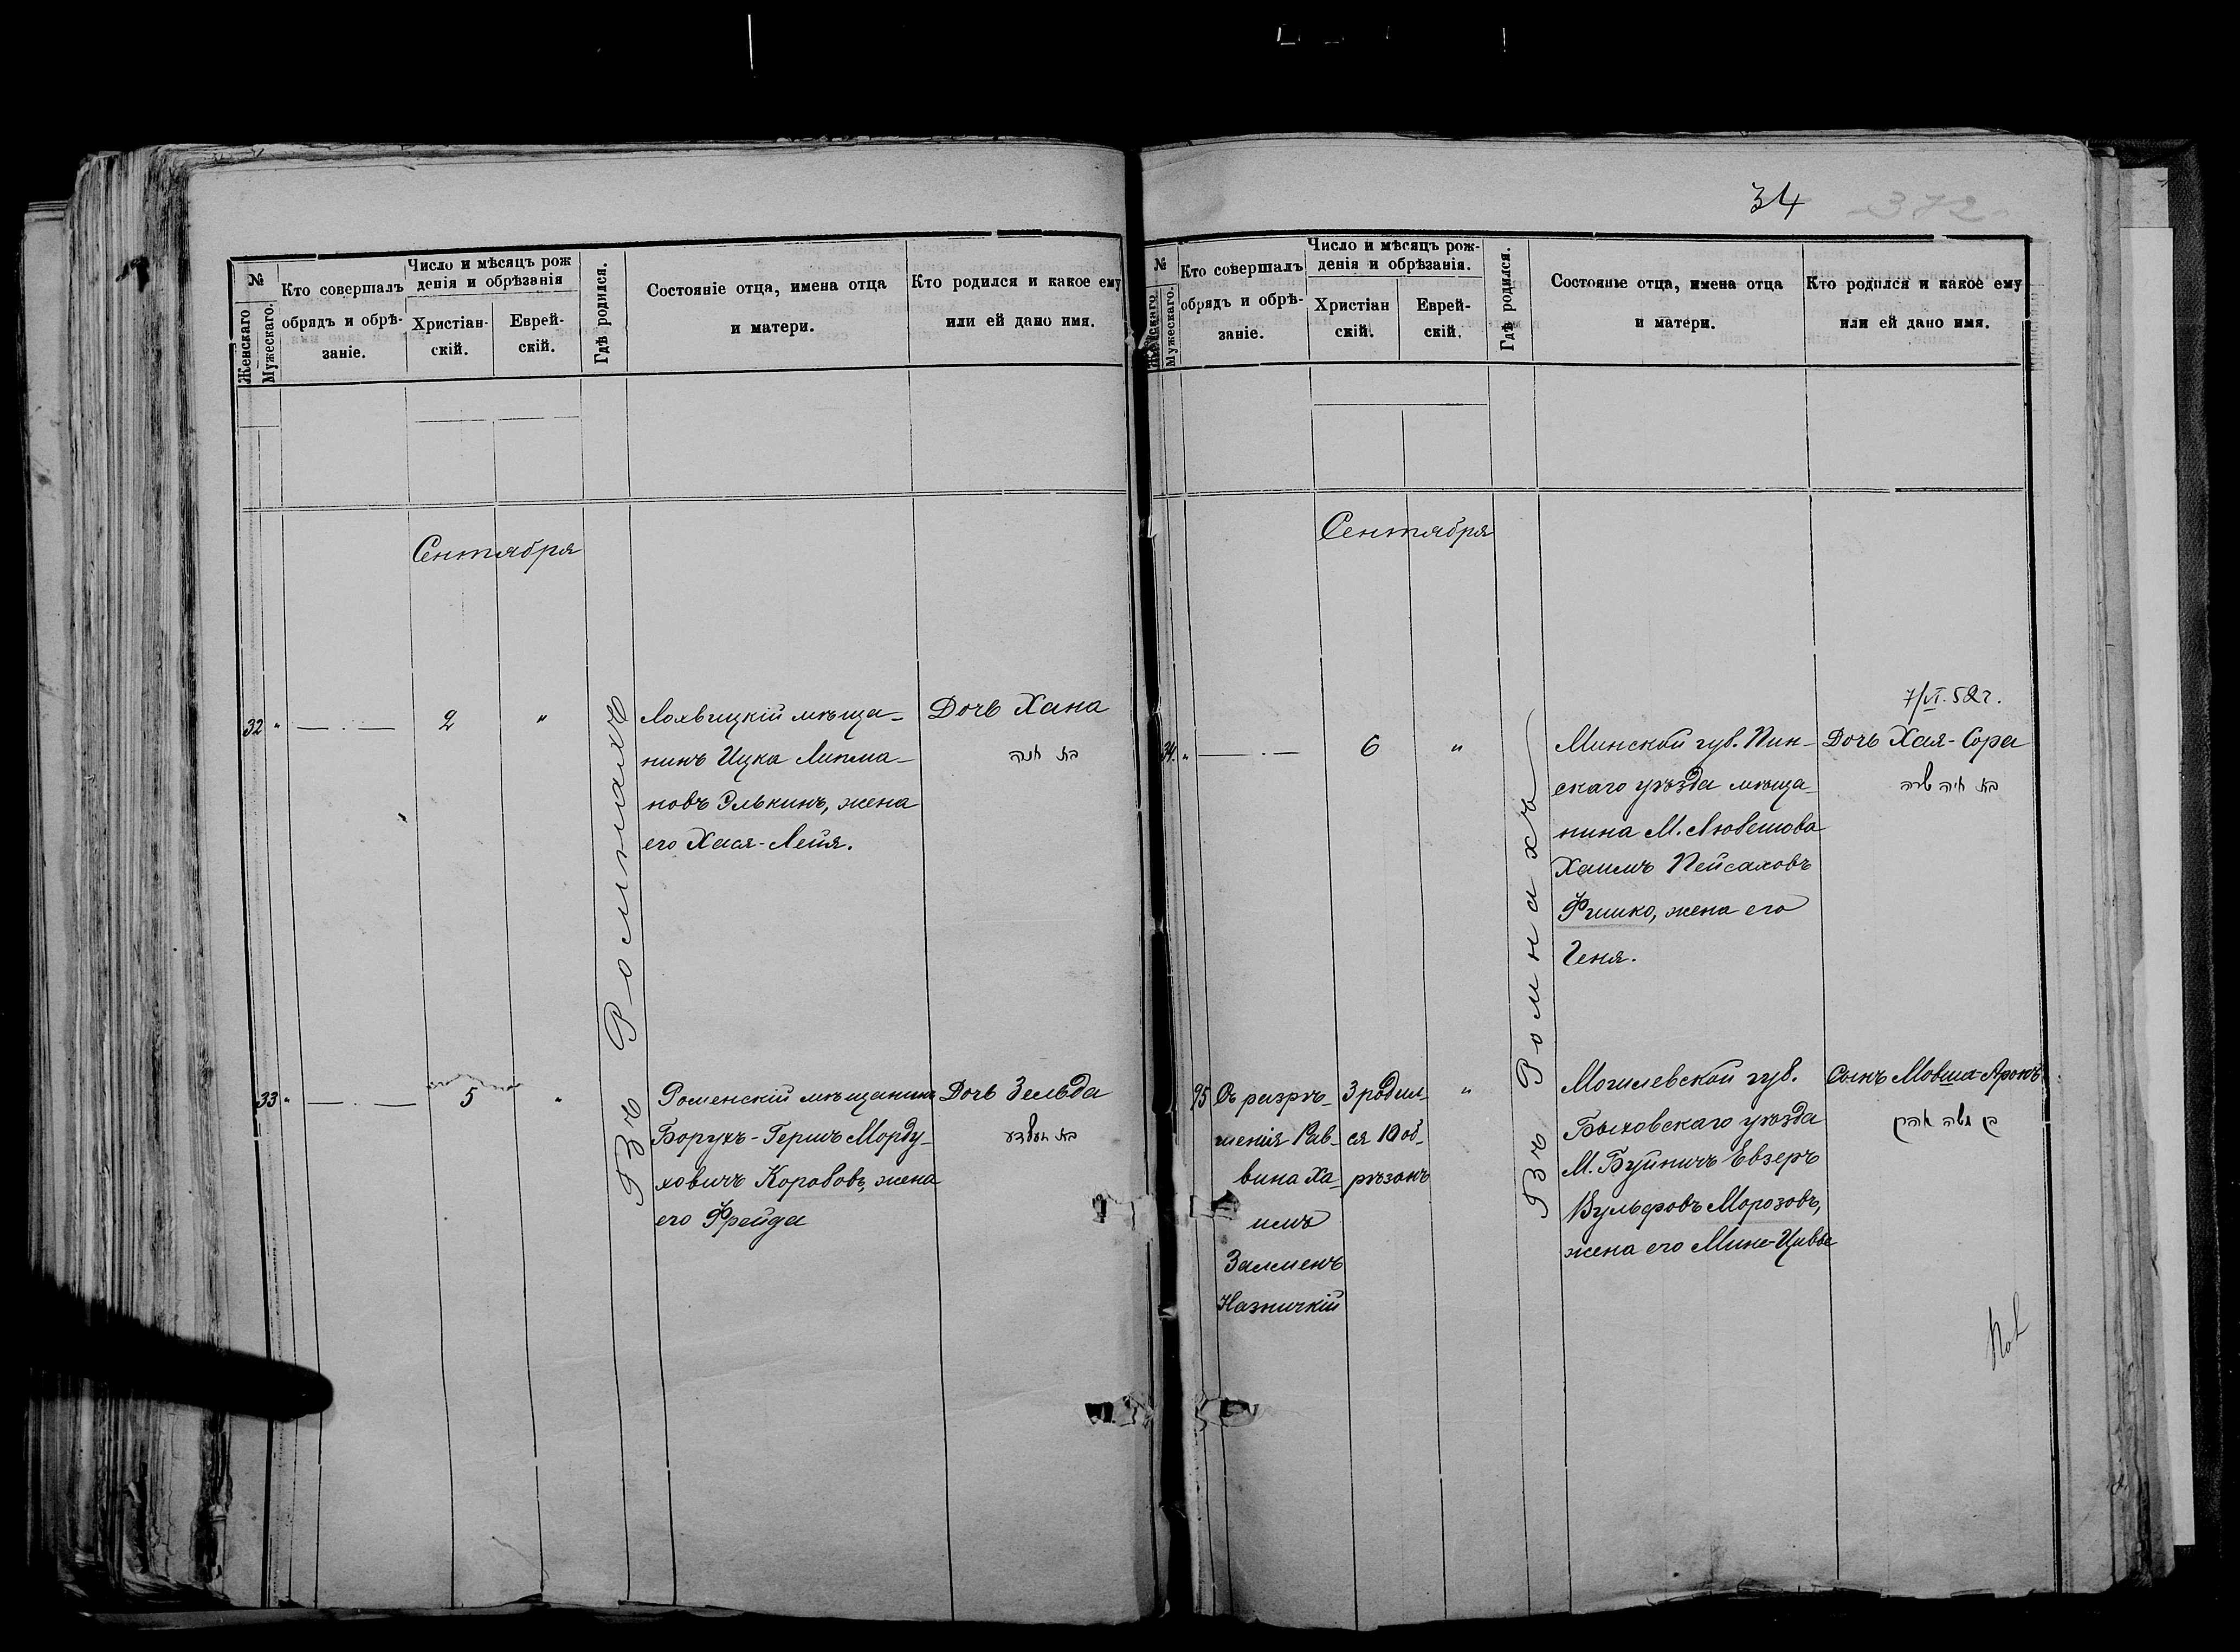 34
372
№
Женскаго
Мужескаго.
Кто совершалъ
обрядъ и обрѣ-
заніе.
Число и мѣсяцъ рож
денія и обрѣзанія
Христіан-
скій.
Еврей-
скій.
Гдѣ родился.
Состояніе отца, имена отца
и матери.
Кто родился и какое ему
или ей дано имя.
Сентября
32 " — . — 2 "
Въ Ромнахъ
Лохвицкій мѣща-
нинъ Ицка Липма-
новъ Элькинъ, жена
его Хася-Лейя.
Дочь Хана
בת חנה
33 " — . — 5 "
Роменскій мѣщанинъ
Борухъ-Гершъ Морду-
ховичъ Коробовъ, жена
его Фрейда
Дочь Зельда
בת זעלדע
№
Женскаго
Мужескаго.
Кто совершалъ
обрядъ и обрѣ-
заніе.
Число и мѣсяцъ рож-
денія и обрѣзанія.
Христіан
скій.
Еврей-
скій.
Гдѣ родился.
Состояніе отца, имена отца
и матери.
Кто родился и какое ему
или ей дано имя.
Сентября
34. " — . — 6 "
Въ Ромнахъ
Минской губ. Пин-
скаго уѣзда мѣща-
нина М. Любешова
Хаимъ Пейсаховъ
Фишко, жена его
Геня.
7/VI. 52 г.
Дочь Хая-Сора
בת חיה שרה
95
Съ разрѣ-
шенія Рав-
вина Ха-
имъ
Залменъ
3 родил-
ся 10 об-
рѣзанъ
"
Могилевской губ.
Быховскаго уѣзда
М. Буйничъ Евзеръ
Вульфовъ Морозовъ,
жена его Мине-Цивье
Сынъ Мовша-Аронъ
בן משה אהרן